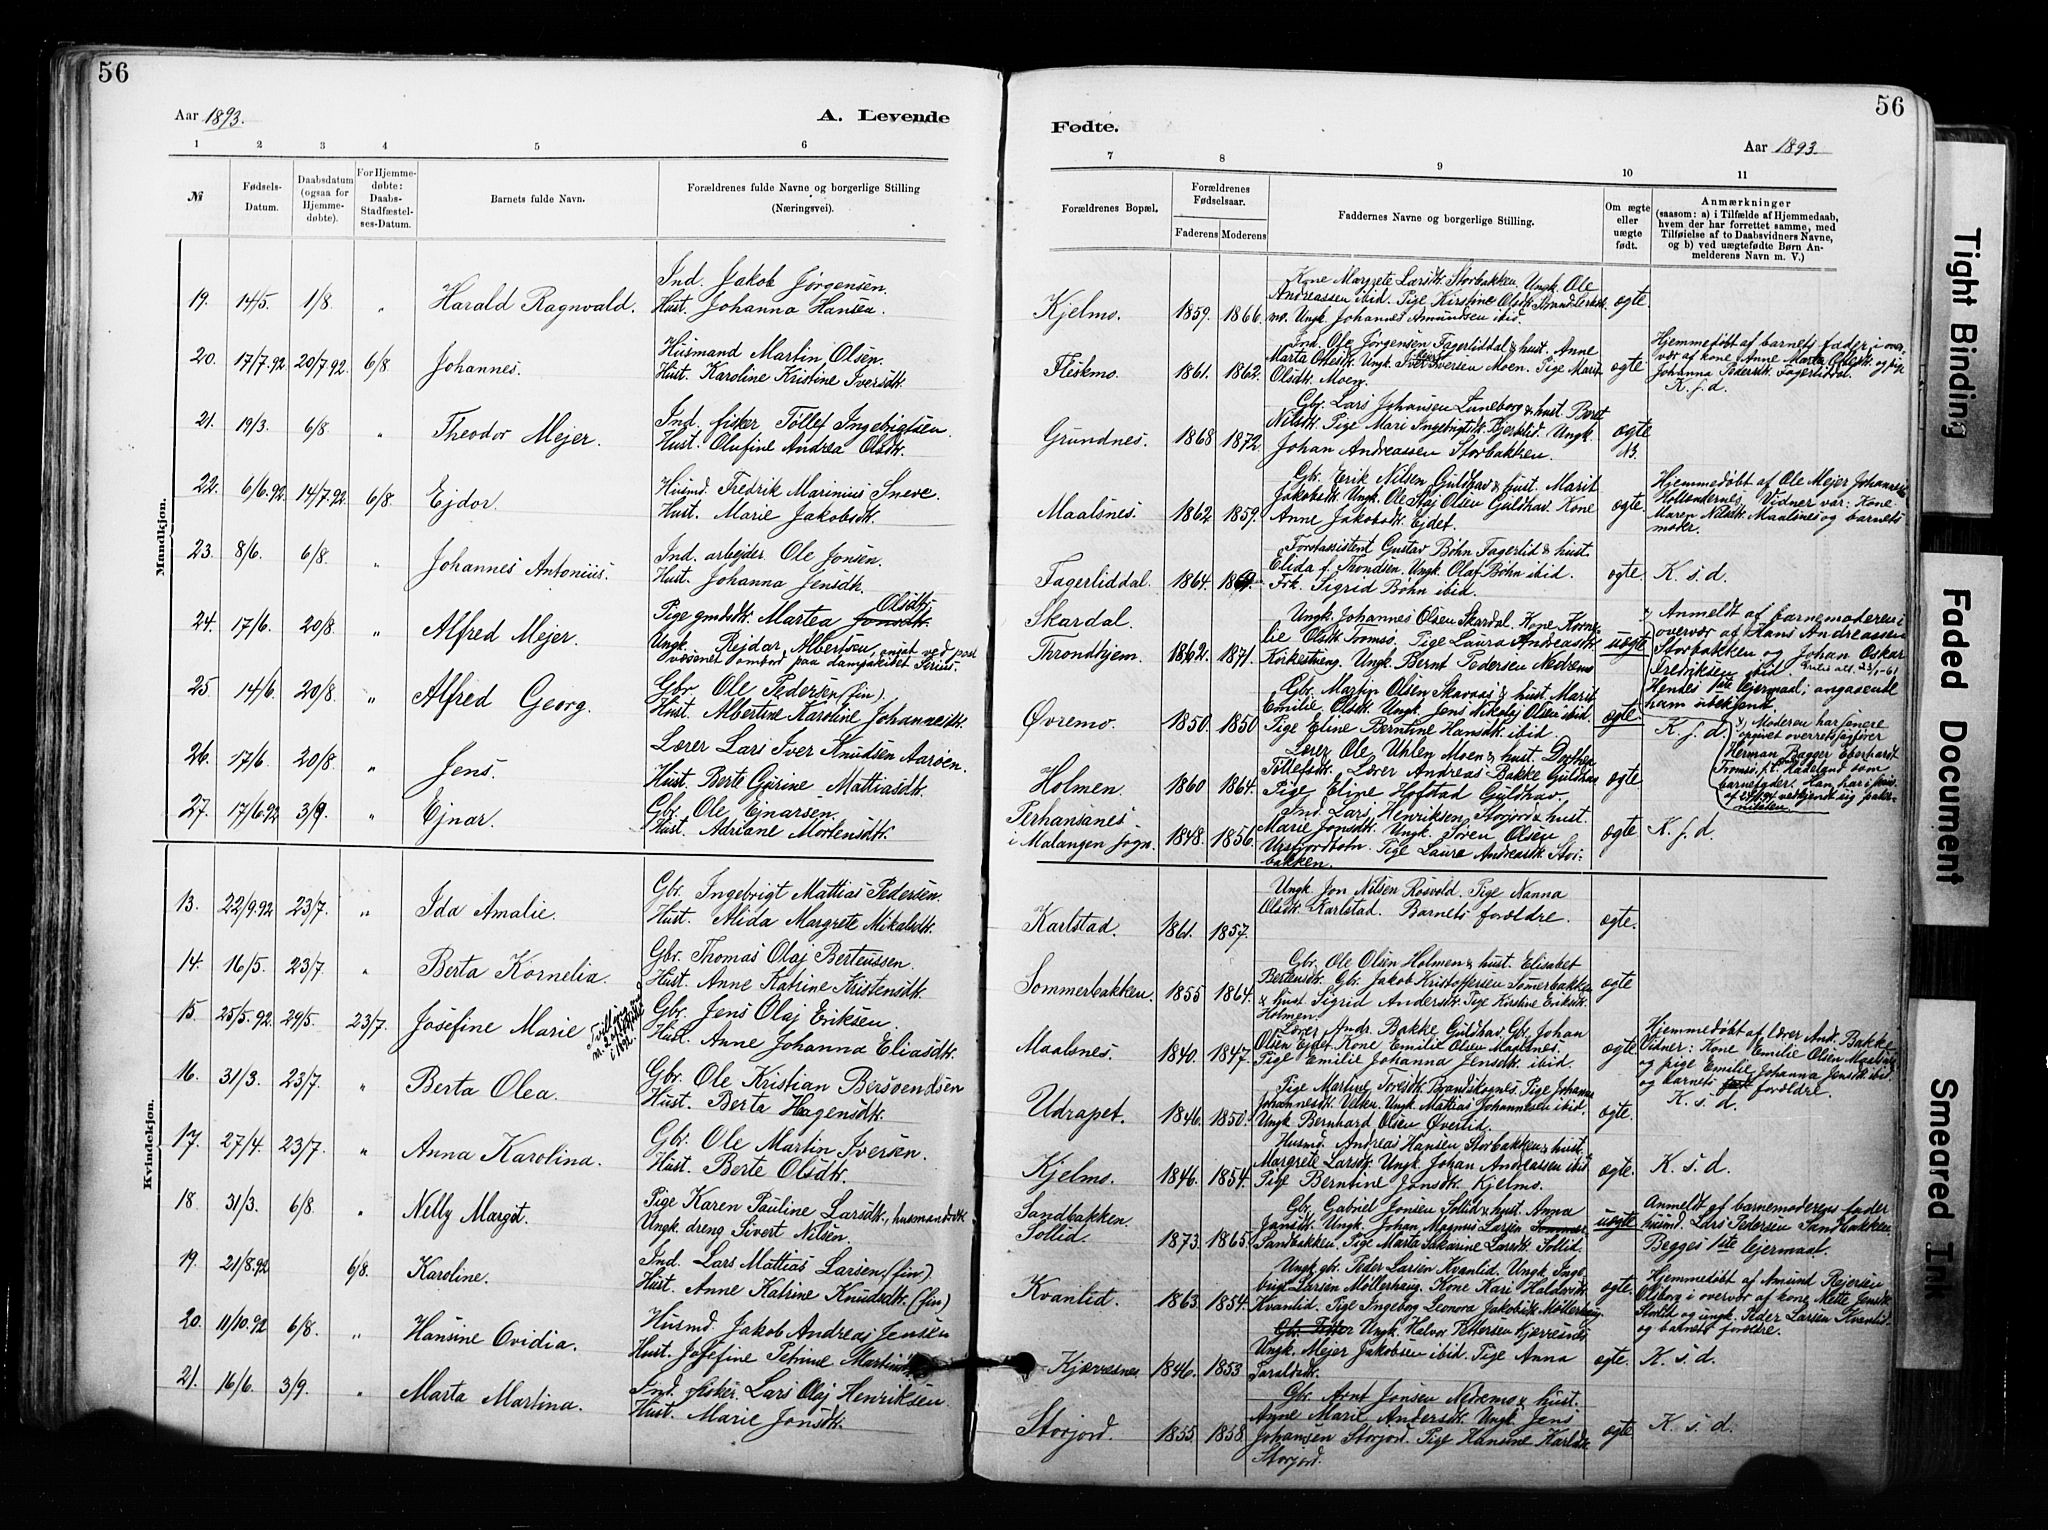 56
56
Aar 1893.
A. Levende
Fødte.
Aar 1893.
1 2 3 4 5 6
7 8 9 10 11
№
Fødsels-Datum.
Daabsdatum (ogsaa for Hjemmedøbte).
For Hjemmedøbte: Daabs-Stadfæstelses-Datum.
Barnets fulde Navn.
Forældrenes fulde Navne og borgerlige Stilling (Næringsvei).
Forældrenes Bopæl.
Forældrenes Fødselsaar.
Faderens Moderens
Faddernes Navne og borgerlige Stilling.
Om ægte eller uægte født.
Anmærkninger
(saasom: a) i Tilfælde af Hjemmedaab,
hvem der har forrettet samme, med
Tilføielse af to Daabsvidners Navne,
og b) ved uægtefødte Børn Anmelderens Navn m. V.)
Mandkjøn.
19. 14/5. 1/8. " Harald Ragnvald. Ind. Jakob Jørgensen.
Hust. Johanna Hansen.
Kjelmo. 1859. 1866. Kone Margrete Larsdtr. Storbakken. Ungk. Ole
Andreassen ibid. Pige Kirstine Olsdtr.
Ungk. Johannes Amundsen ibid. ægte
20. 17/7.92 20/7.92 6/8 Johannes. Husmand Martin Olsen.
Hust. Karoline Kristine Iversdtr.
Fleskmo. 1861. 1862. Ind. Ole Jørgensen Fagerliddal & hust. Anne
Marta Olsdtr. Ungk. Iver Iversen Moen. Pige Marit
Olsdtr. Moen. ægte
Hjemmedøbt af barnets fader i overvær
af kone Anne Marta Olsdtr. og pige
Johanna Pedersdtr. Fagerliddal.
K. s. d.
21. 19/3. 6/8. " Theodor Mejer. Ind. fisker Tollef Ingebrigtsen.
Hust. Olufine Andrea Olsdtr.
Grundnes. 1868 1872. Gbr. Lars Johansen Luneborg & hust. Beret
Nilsdtr. Pige Mari Ingebrigtsdtr. Bjerklid. Ungk.
Johan Andreassen Storbakken. ægte
22. 6/6.92. 14/7.92. 6/8 Ejdor. Husmd. Fredrik Marinius Sneve.
Hust. Marie Jakobsdtr.
Maalsnes. 1862. 1859. Gbr. Erik Nilsen Guldhav & hust. Marit
Jakobsdtr. Ungk. Ole Olsen Guldhav. Kone
Anne Jakobsdtr. Ejdet. ægte.
Hjemmedøbt af Ole Mejer Johannesen
Hollendernes. Vidner var: Kone
Maren Nilsdtr. Maalsnes og barnets
moder.
23. 8/6. 6/8. " Johannes Antonius. Ind. arbejder Ole Jonsen.
Hust. Johanna Jensdtr.
Fagerliddal. 1864. Forstassistent Gustav Bøhn Fagerlid & hust.
Elida f. Thondsen. Ungk. Olaf Bøhn ibid.
Frk. Sigrid Bøhn ibid. ægte. K. s. d.
24. 17/6. 20/8. " Alfred Mejer. Pige gmdsdtr. Martea Jonsdtr. Olsdtr.
Ungk. Rejdar Albertsen, ansat ved postvæsenet ombord paa dampskibet Sirius.
Skardal.
Throndhjem. 1862. 1871. Ungk. Johannes Olsen Skardal. Kone Kornelie
Olsdtr. Tromsø. Pige Laura Andreasdtr.
Kirkestueng. Ungk. Bernt Pedersen Nedremo uægte
Anmeldt af barnemoderen i
overvær af Hans Andreassen
Storbakken og Johan Oskar
Fredriksen ibid.
Hendes 1ste lejermaal; angaaende
ham ubekjendt.
25. 14/6. 20/8. " Alfred Georg. Gbr. Ole Pedersen (fin).
Hust. Albertine Karoline Johannesdtr.
Øvremo. 1850. 1850 Gbr. Martin Olsen Skavaas & hust. Marit
Emilie Olsdtr. Ungk. Jens Nikolaj Olsen ibid.
Pige Eline Berntine Hansdtr. ibid. ægte. K. s. d.
Moderen har senere
opgivet overretssagfører
Herman Bagger Eberhardt
Tromsø, f. i Hadeland som
barnefader.
26. 17/6. 20/8. " Jens. Lærer Lars Iver Knudsen Aarsen.
Hust. Berte Gjurine Mattiasdtr.
Holmen. 1860 1864. Lærer Ole Uhlen Moen & hust. Dorthea
Tollefsdtr. Lærer Andreas Bakke Guldhav
Pige Eline Hofstad Guldhav. ægte
27. 17/6.92 3/9. " Ejnar. Gbr. Ole Ejnarsen.
Hust. Adriane Mortensdtr.
Perhansanes
i Malangen sogn. 1848. 1856. Ind. Lars Henriksen Storjord & hust.
Marie Jonsdtr. Ungk. Søren Olsen
Ursfjordbotn. Pige Laura Andreasdtr. Storbakken. ægte K. s. d.
Kvindekjøn.
13. 22/9.92 23/7. " Ida Amalie. Gbr. Ingebrigt Mattias Pedersen.
Hust. Alida Margrete Mikalsdtr.
Karlstad. 1861. 1857. Ungk. Jon Nilsen Rosvold. Pige Nanna
Olsdtr. Karlstad. Barnets forældre. ægte.
14. 16/5. 23/7. " Berta Kornelia. Gbr. Thomas Olaj Berteussen.
Hust. Anne Katrine Kristensdtr.
Sommerbakken. 1855 1864. Gbr. Ole Olsen Holmen & hust. Elisabet
Bertensdtr. Gbr. Jakob Kristoffersen Somerbakken
& hust. Sigrid Andersdtr. Pige Kirstine Eriksdtr.
Holmen. ægte
15. 25/5.92 29/5. 23/7. Josefine Marie Gbr. Jens Olaj Eriksen.
Hust. Anne Johanna Eliasdtr.
Maalsnes. 1840. 1847. Lærer Andr. Bakke Guldhav. Gbr. Johan
Olsen Ejdet. Kone Emilie Olsen Maalsnes.
Pige Emilie Johanna Jensdtr. ibid. ægte
Hjemmedøbt af lærer And. Bakke
Vidner: Kone Emilie Olsen Maalsnes
og pige Emilie Johanna Jensdtr. ibid.
og barnets forældre.
K. s. d.
16. 31/3. 23/7. " Berta Olea. Gbr. Ole Kristian Bersvendsen
Hust. Berta Hagensdtr.
Udrapet. 1846. 1850. Pige Martine Toresdtr. Brandskognes. Pige Johanna
Johannesdtr. Ungk. Mattias Johannesen ibid.
Ungk. Bernhard Olsen Øverlid. ægte.
17. 27/4. 23/7. " Anna Karolina. Gbr. Ole Martin Iversen.
Hust. Berte Olsdtr.
Kjelmo. 1846. 1854. Husmd. Andreas Hansen Storbakken & hust.
Margrete Larsdtr. Ungk. Johan Andreassen ibid.
Pige Berntine Jonsdtr. Kjelmo. ægte. K. s. d.
18. 31/3. 6/8. " Nelly Margot. Pige Karen Pauline Larsdtr., husmandsdtr.
Ungk. dreng Sivert Nilsen.
Sandbakken.
Sollid. 1873. 1865. Gbr. Gabriel Jonsen Sollid & hust. Anna
Jansdtr. Ungk. Johan Magnus Larsen
Sandbakken. Pige Marta Sakarine Larsdtr. Sollid. uægte
Anmeldt af barnemoderens fader
husmd. Lars Pedersen Sandbakken.
Begges 1ste lejermaal.
19. 21/8.92 6/8. Karoline. Ind. Lars Mattias Larsen (fin)
Hust. Anne Katrine Knudsdtr. (fin)
Kvantlid. 1863. 1854. Ungk. gbr. Peder Larsen Kvantlid. Ungk. Ingebrigt
Larsen Møllerhaug. Kone Kari Haldorsdtr.
Kvantlid. Pige Ingeborg Leonora Jakobsdtr. Møllerhaug ægte.
Hjemmedøbt af Amund Rejersen
Olsborg i overvær af kone Mette Jensdtr.
og ungk. Peder Larsen Kvantlid
og barnets forældre.
20. 11/10.92 6/8. " Hansine Ovidia. Husmd. Jakob Andreas Jensen
Hust. Josefine Petrine
Kjærresnes 1846. 1853 Ungk. Halvor Pettersen Kjerresnes
Ungk. Mejer Jakobsen ibid. Pige Anna
Taraldsdtr. ægte. K. s. d.
21. 16/6. 3/9. " Marta Martina. Ind. fisker. Lars Olaj Henriksen
Hust. Marie Jonsdtr.
Storjord. 1855. 1858. Gbr. Arnt Jonsen Nedremo & hust.
Anne Marie Andersdtr. Ungk. Jens
Johansen Storjord. Pige Hansine Karlsdtr.
Storjord. ægte K. s. d.
Tight Binding
Faded Document
Smeared Ink